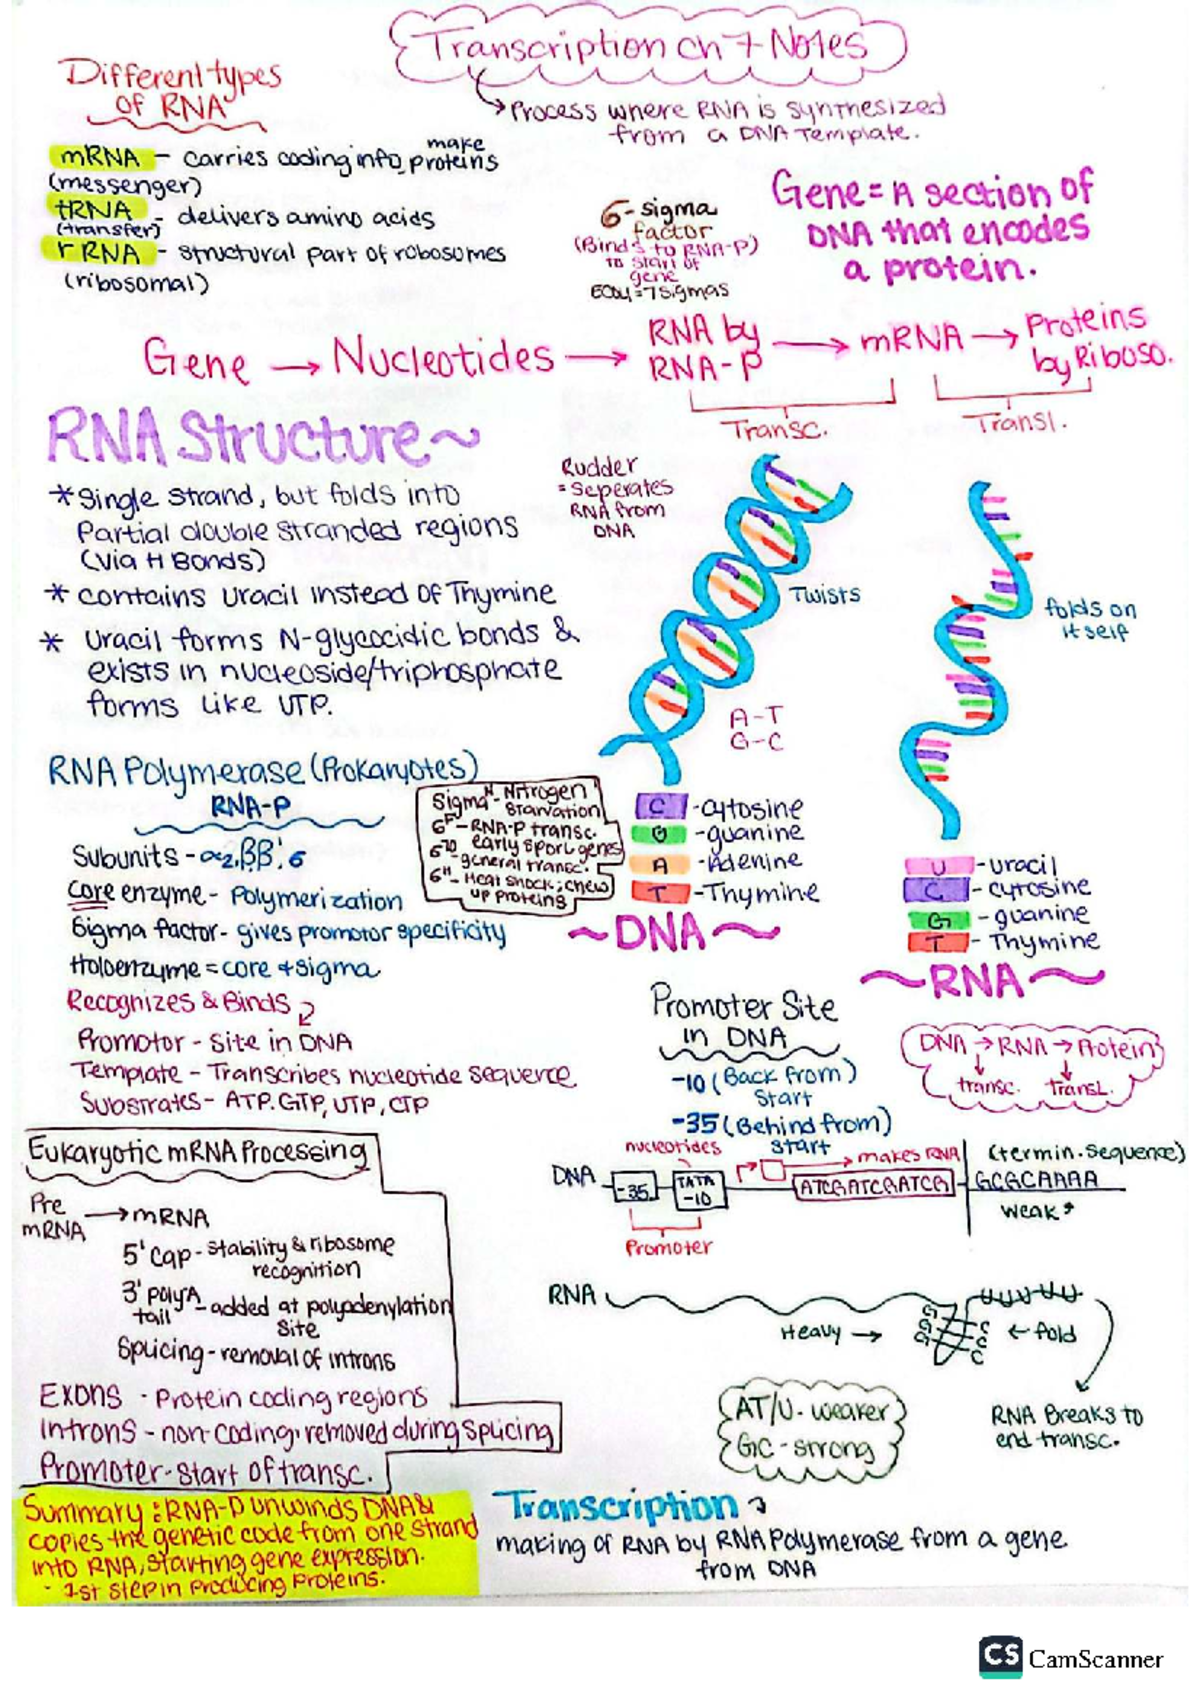 Transcription ch 7 Notes
Process where RNA is synthesized
from a DNA Template.
Different types
of RNA
mRNA - carries coding info, make proteins
(messenger)
tRNA - delivers amino acids
(transfer)
rRNA - structural part of robosomes
(ribosomal)
6-sigma
factor
(Binds to RNA-P)
to start of
gene
Ecoli=7sigmas
Gene = A section of
DNA that encodes
a protein.
Gene → Nucleotides → RNA by RNA-P → mRNA → Proteins by Riboso.
Transc.
Transl.
RNA Structure~
* Single strand, but folds into
Partial double stranded regions
(Via H Bonds)
* contains Uracil instead of Thymine
* Uracil forms N-glycocidic bonds &
exists in nucleoside/triphosphate
forms like UTP.
Rudder
= Seperates
RNA from
DNA
Twists
A-T
G-C
folds on
itself
C - cytosine
G - guanine
A - Adenine
T - Thymine
~DNA~
U - uracil
C - cytosine
G - guanine
T - Thymine
~RNA~
RNA Polymerase (Prokaryotes)
RNA-P
Subunits - α2,β,β',6
Core enzyme - Polymerization
Sigma factor - gives promotor specificity
Holoenzyme = core + sigma
Recognizes & Binds
Promotor - Site in DNA
Template - Transcribes nucleotide sequence
Substrates - ATP.GTP, UTP, CTP
Sigma N - Nitrogen
Starvation
6F - RNA-P transc.
early sport genes
670 - general transc.
6H - Heat shock; chew
up proteins
Promoter Site
in DNA
-10 (Back from)
Start
-35 (Behind from)
start
DNA → RNA → Protein
transc. transl.
nucleotides
makes RNA
(termin. sequence)
DNA -35 TATA -10 ATCGATCGATCG GCGCAAAA
weak
Promoter
RNA
UUUUUU
Heavy →
G
G
G
C
C
C
← fold
RNA Breaks to
end transc.
AT/U- weaker
GC - strong
Eukaryotic mRNA Processing
Pre mRNA → mRNA
5' cap - stability & ribosome
recognition
3' polyA tail - added at polyadenylation
site
Splicing - removal of introns
Exons - Protein coding regions
Introns - non-coding; removed during splicing
Promoter - start of transc.
Summary: RNA-P unwinds DNA &
copies the genetic code from one strand
into RNA, starting gene expression.
- 1st step in producing proteins.
Transcription
making of RNA by RNA Polymerase from a gene
from DNA
CS CamScanner